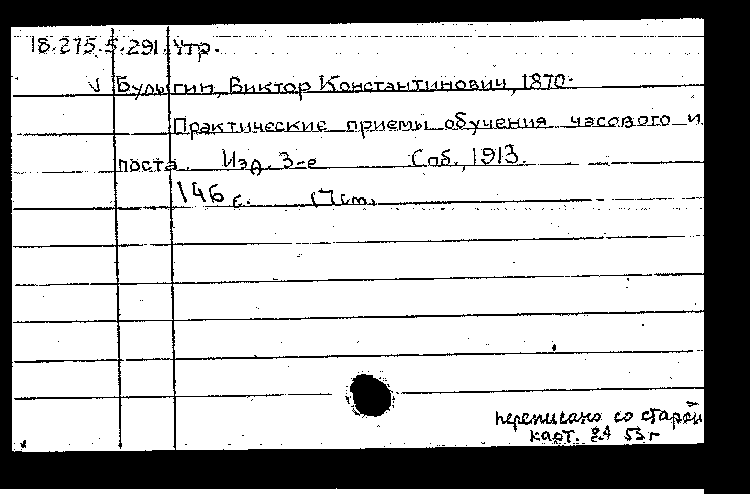 18.275.5.291. Утр.
√ Булыгин, Виктор Константинович, 1870-
Практические приемы обучения часового и
поста. Изд. 3-е Спб., 1913.
146 с.
переписано со старой
карт. 53 г